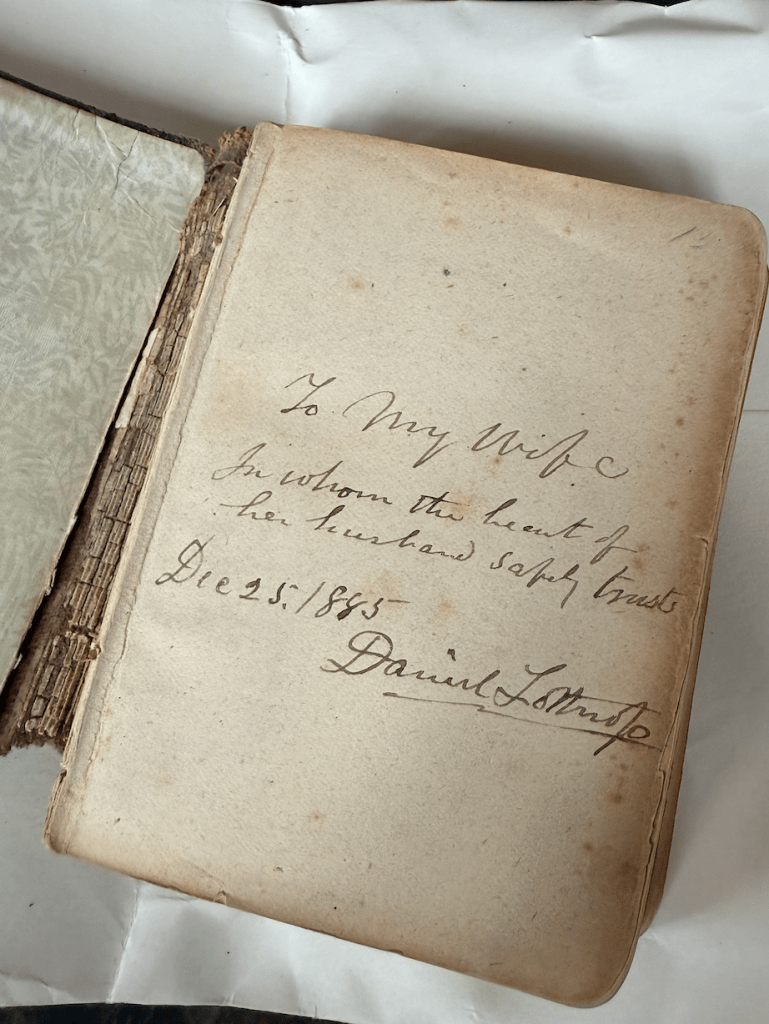 To My Wife
In whom the heart of
her husband safely trusts
Dec 25. 1885
Daniel Lothrop